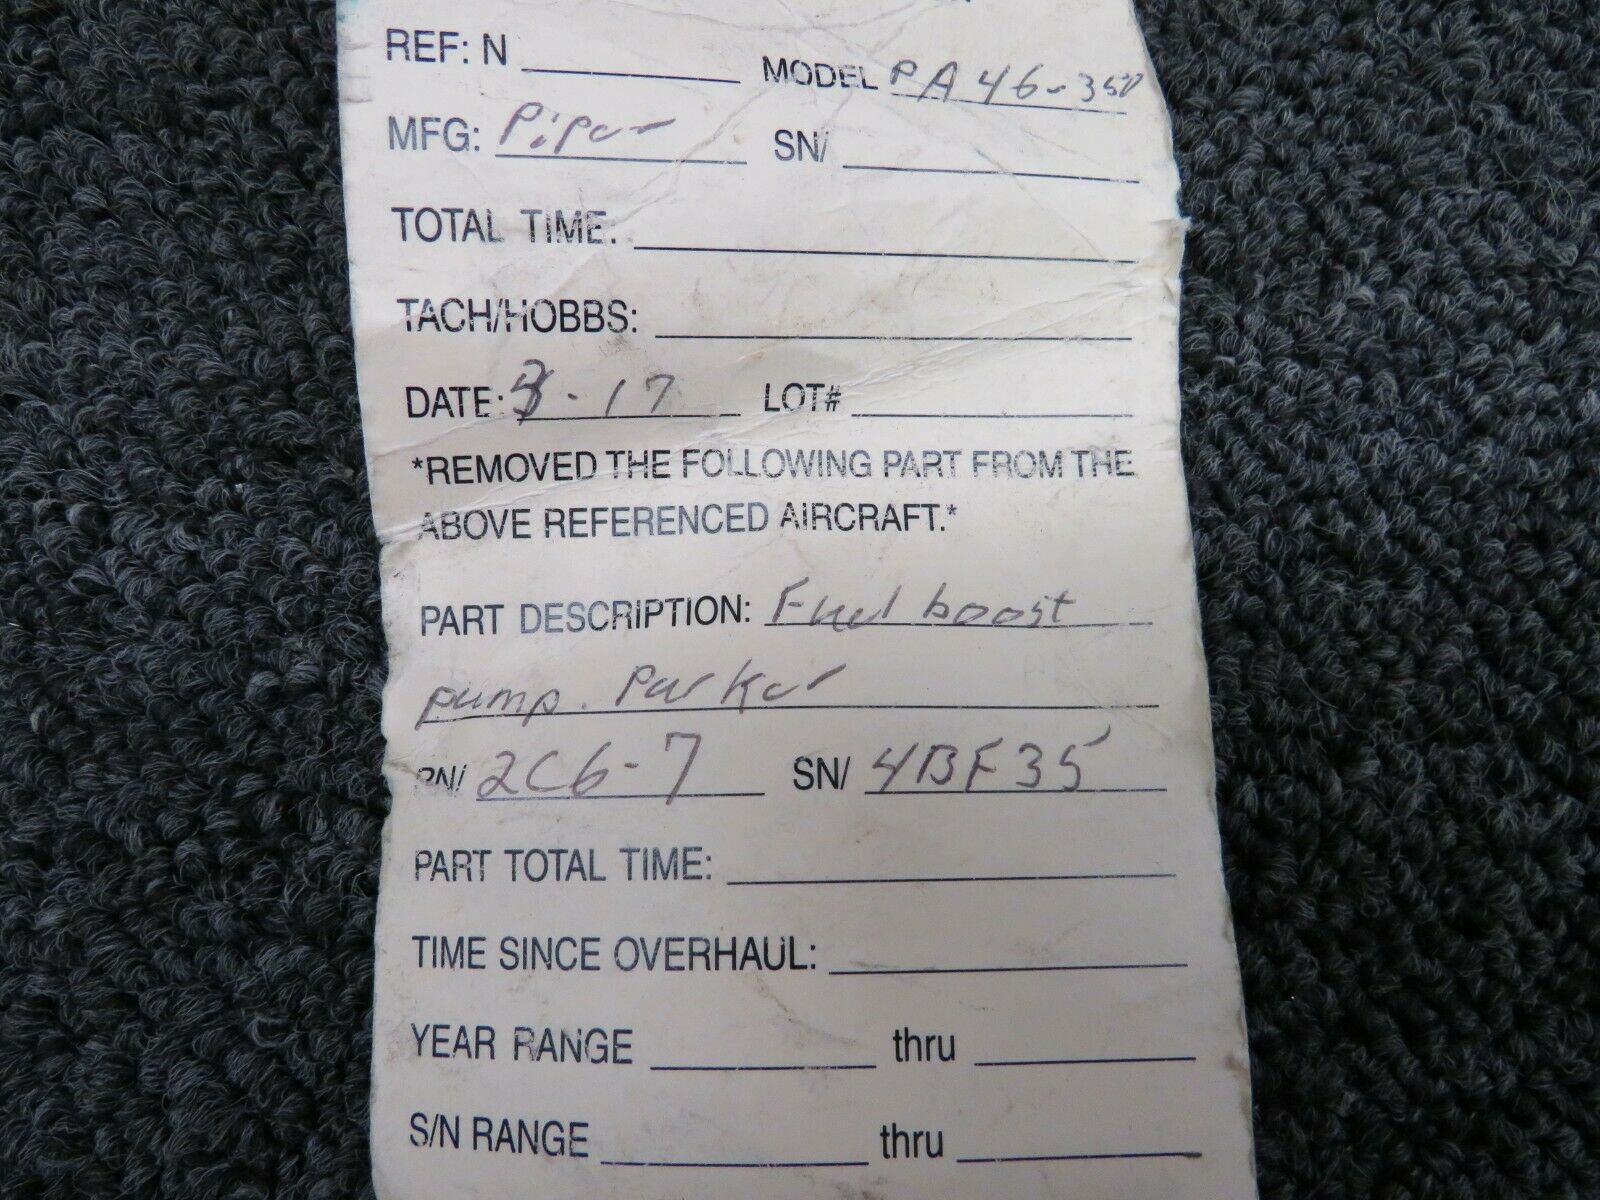 REF: N MODEL PA 46-350
MFG: Piper SN/
TOTAL TIME:
TACH/HOBBS:
DATE: -17 LOT#
*REMOVED THE FOLLOWING PART FROM THE
ABOVE REFERENCED AIRCRAFT.*
PART DESCRIPTION: Fuel boost
pump. Parker
PN/ 2C6-7 SN/ 4BF35
PART TOTAL TIME:
TIME SINCE OVERHAUL:
YEAR RANGE thru
S/N RANGE thru